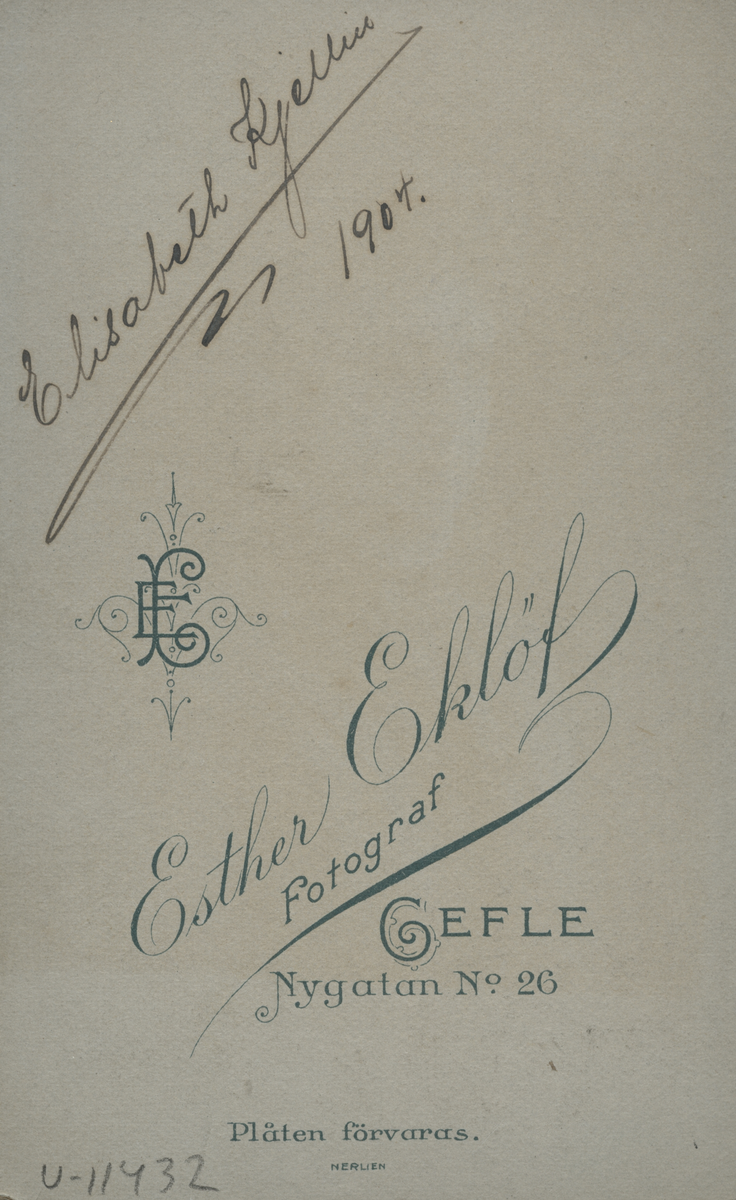 Elisabeth Kjellin
1904.
EE
Esther Eklöf
Fotograf
GEFLE
Nygatan No 26
Plåten förvaras.
NERLIEN
U-11432